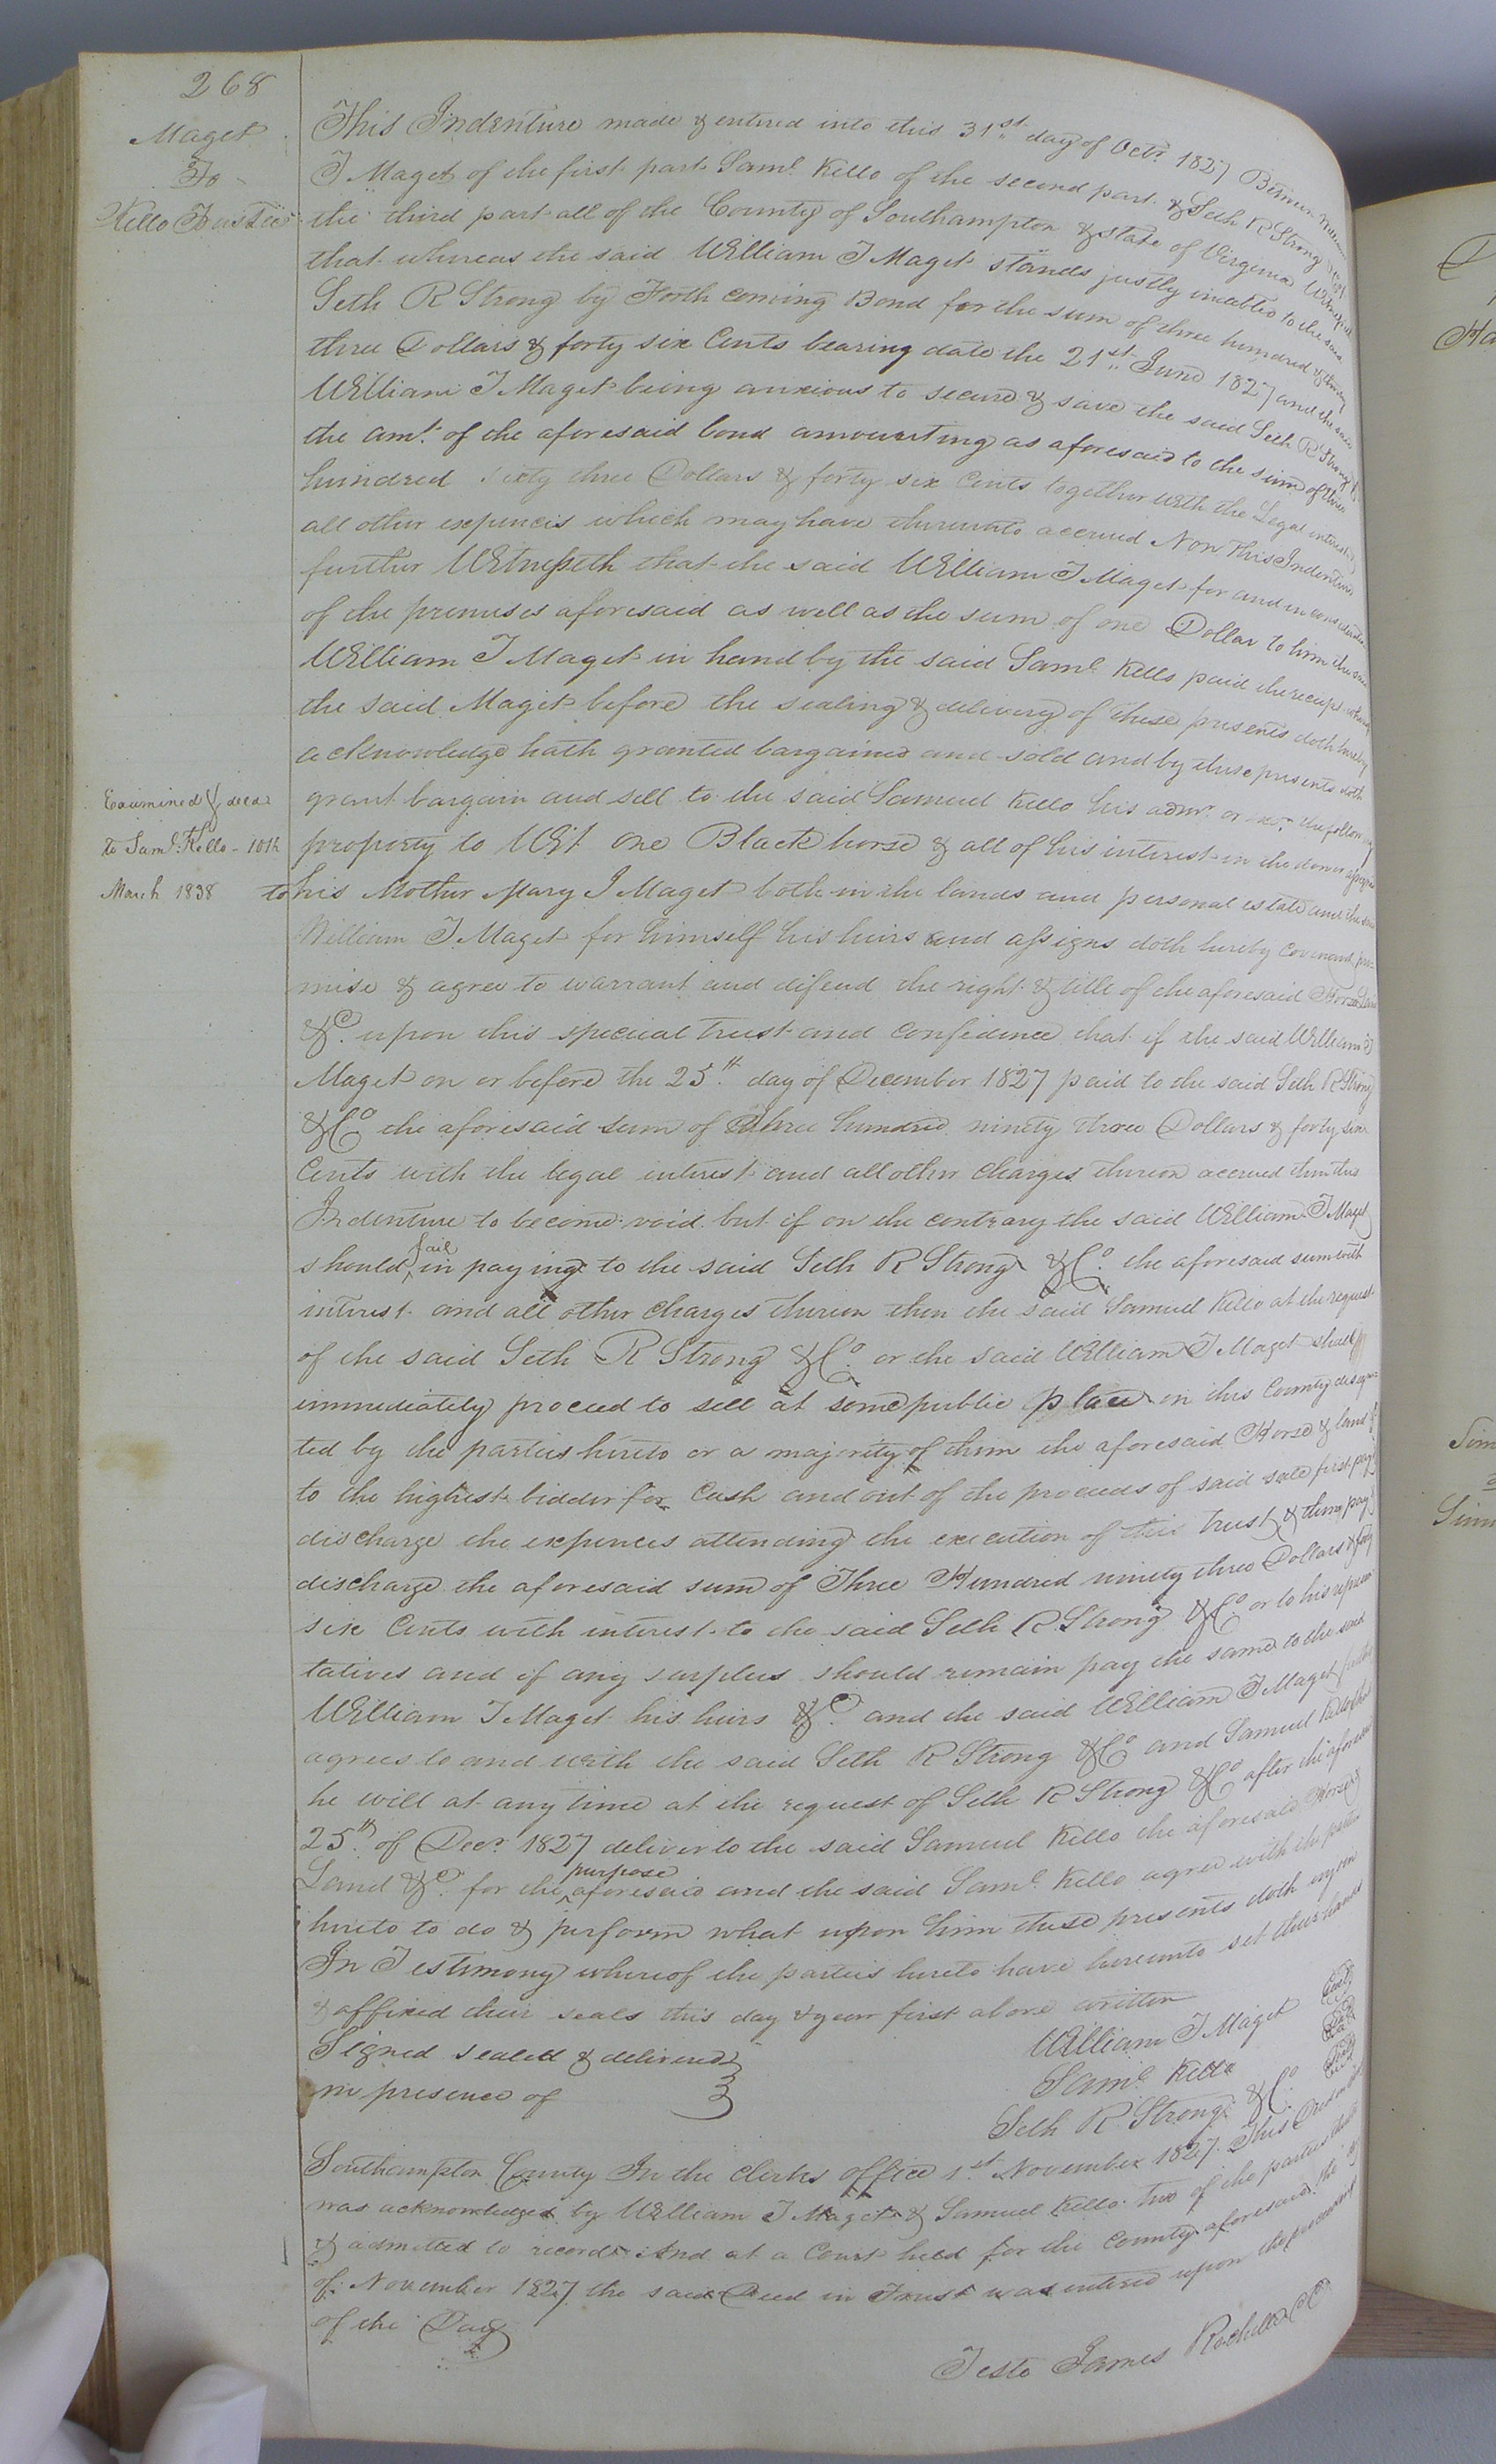 268
Maget
To
Kello Trustee
This Indenture made & entered into this 31st day of Octr 1827 Between
T Maget of the first part Saml Kello of the second part & Seth R Strong
the third part all of the County of Southampton & state of Virginia Witnesseth
that whereas the said William T Maget stands justly indebted to the said
Seth R Strong by Forth coming Bond for the sum of three hundred & ninety
three Dollars & forty six Cents bearing date the 21st June 1827 and the said
William T Maget being anxious to secure & save the said Seth R Strong
the amt. of the aforesaid bond amounting as aforesaid to the sum of three
hundred sixty three Dollars & forty six Cents together with the Legal interest
all other expences which may have thereunto accrued Now This Indenture
further Witnesseth that the said William T Maget for and in consideration
of the premises aforesaid as well as the sum of one Dollar to him the said
William T Maget in hand by the said Saml Kello paid the receipt whereof
the said Maget before the sealing & delivery of these presents doth hereby
acknowledge hath granted bargained and sold and by these presents doth
Examined & deld
to Saml. Kello - 10th
March 1838
grant bargain and sell to the said Samuel Kello his admr. or exor. the following
property to Wit one Black horse & all of his interest in the dower assigned
to his Mother Mary J Maget both in the lands and personal estate and the said
William T Maget for himself his heirs and assigns doth hereby covenant pro-
mise & agree to warrant and defend the right & title of the aforesaid Horse Land
&C. upon this special trust and confidence that if the said William T
Maget on or before the 25th day of December 1827 paid to the said Seth R Strong
& Co the aforesaid sum of three hundred ninety three Dollars & forty six
Cents with the legal interest and all other charges thereon accrued then this
Indenture to become void but if on the contrary the said William T Maget
should fail in paying to the said Seth R Strong & Co. the aforesaid sum with
interest and all other charges thereon then the said Samuel Kello at the request
of the said Seth R Strong & Co. or the said William T Maget shall
immediately proceed to sell at some public place in this County designa
ted by the parties hereto or a majority of them the aforesaid Horse & land &
to the highest bidder for Cash and out of the proceeds of said sale first pay &
discharge the expences attending the execution of this trust & then pay &
discharge the aforesaid sum of Three Hundred ninety three Dollars & forty
six Cents with interest to the said Seth R Strong & Co or to his represen
tatives and if any surplus should remain pay the same to the said
William T Maget his heirs &C. and the said William T Maget further
agrees to and with the said Seth R Strong & Co and Samuel Kello that
he will at any time at the request of Seth R Strong & Co after the aforesaid
25th of Decr 1827 deliver to the said Samuel Kello the aforesaid Horse &
Land &C. for the purpose aforesaid and the said Saml Kello agree with the parties
hereto to do & perform what upon him these presents doth enjoin
In Testimony whereof the parties hereto have hereunto set their hands
& affixed their seals this day & year first above written
Signed sealed & delivered
in presence of
William T Maget Seal
Saml Kello Seal
Seth R Strong & Co. Seal
Southampton County In the Clerks office 1st November 1827. This Deed in
was acknowledged by William T Maget & Samuel Kello two of the parties thereto
& admitted to record And at a Court held for the County aforesaid the
of November 1827 the said Deed in Trust was entered upon the proceedings
of the Day
Teste James Rochelle CC